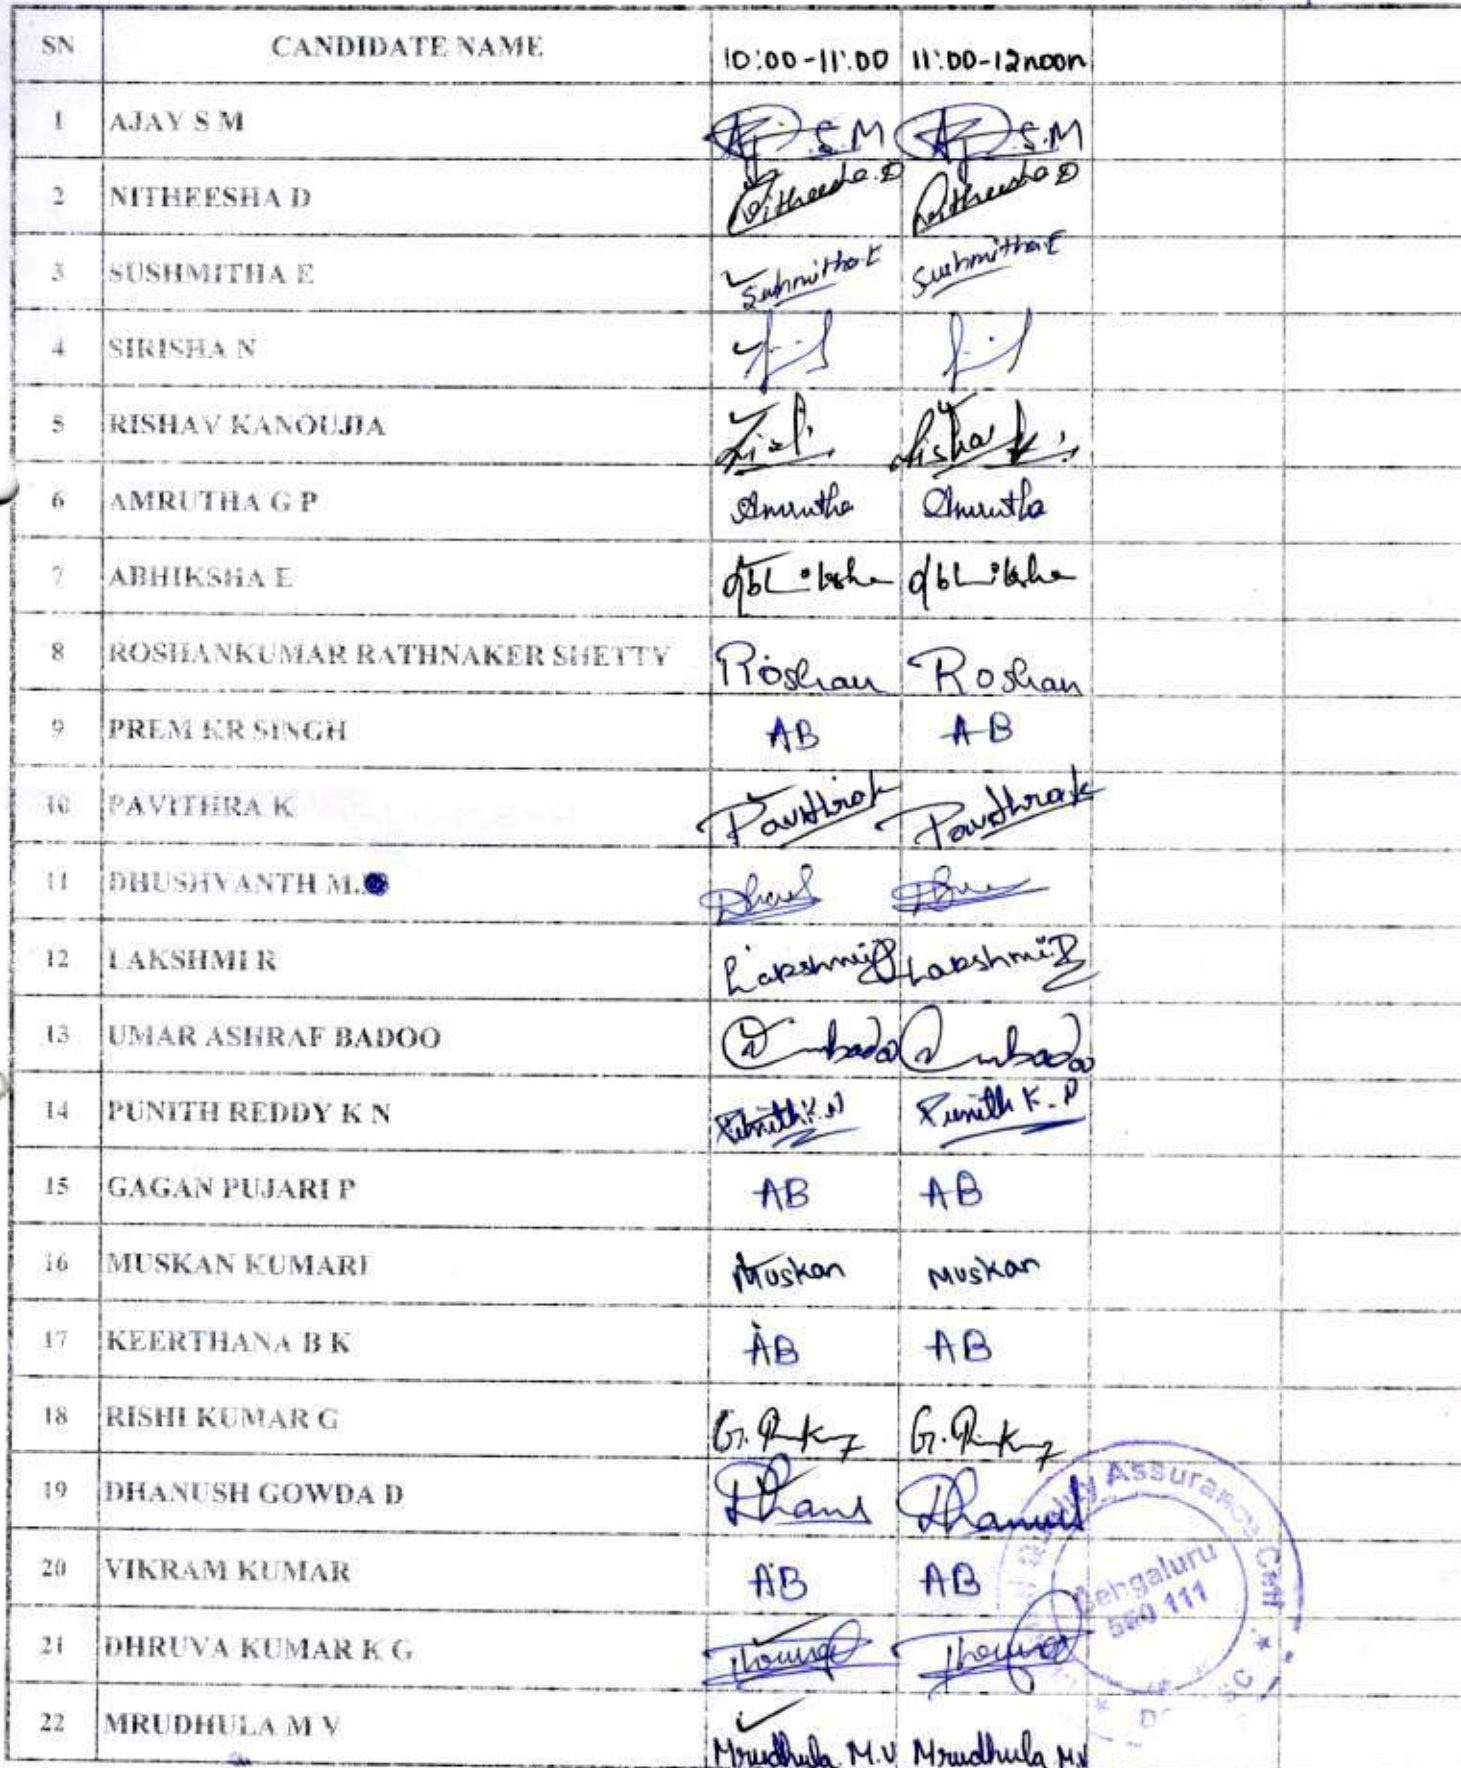 SN CANDIDATE NAME 10:00-11:00 11:00-12noon
1 AJAY S M S.M S.M
2 NITHEESHA D Nitheesha.D Nitheesha D
3 SUSHMITHA E Sushmitha E Sushmitha E
4 SIRISHA N
5 RISHAV KANOUJIA
6 AMRUTHA G P Amrutha Amrutha
7 ABHIKSHA E Abhiksha Abhiksha
8 ROSHANKUMAR RATHNAKER SHETTY Roshan Roshan
9 PREM KR SINGH AB AB
10 PAVITHRA K Pavithra k Pavithra k
11 DHUSHYANTH M.
12 LAKSHMI R Lakshmi R Lakshmi R
13 UMAR ASHRAF BADOO
14 PUNITH REDDY K N Punith K.N Punith K.N
15 GAGAN PUJARI P AB AB
16 MUSKAN KUMARI Muskan Muskan
17 KEERTHANA B K AB AB
18 RISHI KUMAR G
19 DHANUSH GOWDA D
20 VIKRAM KUMAR AB AB
21 DHRUVA KUMAR K G
22 MRUDHULA M V Mrudhula M.V Mrudhula M.V
Quality Assurance Cell
Bengaluru
560 111